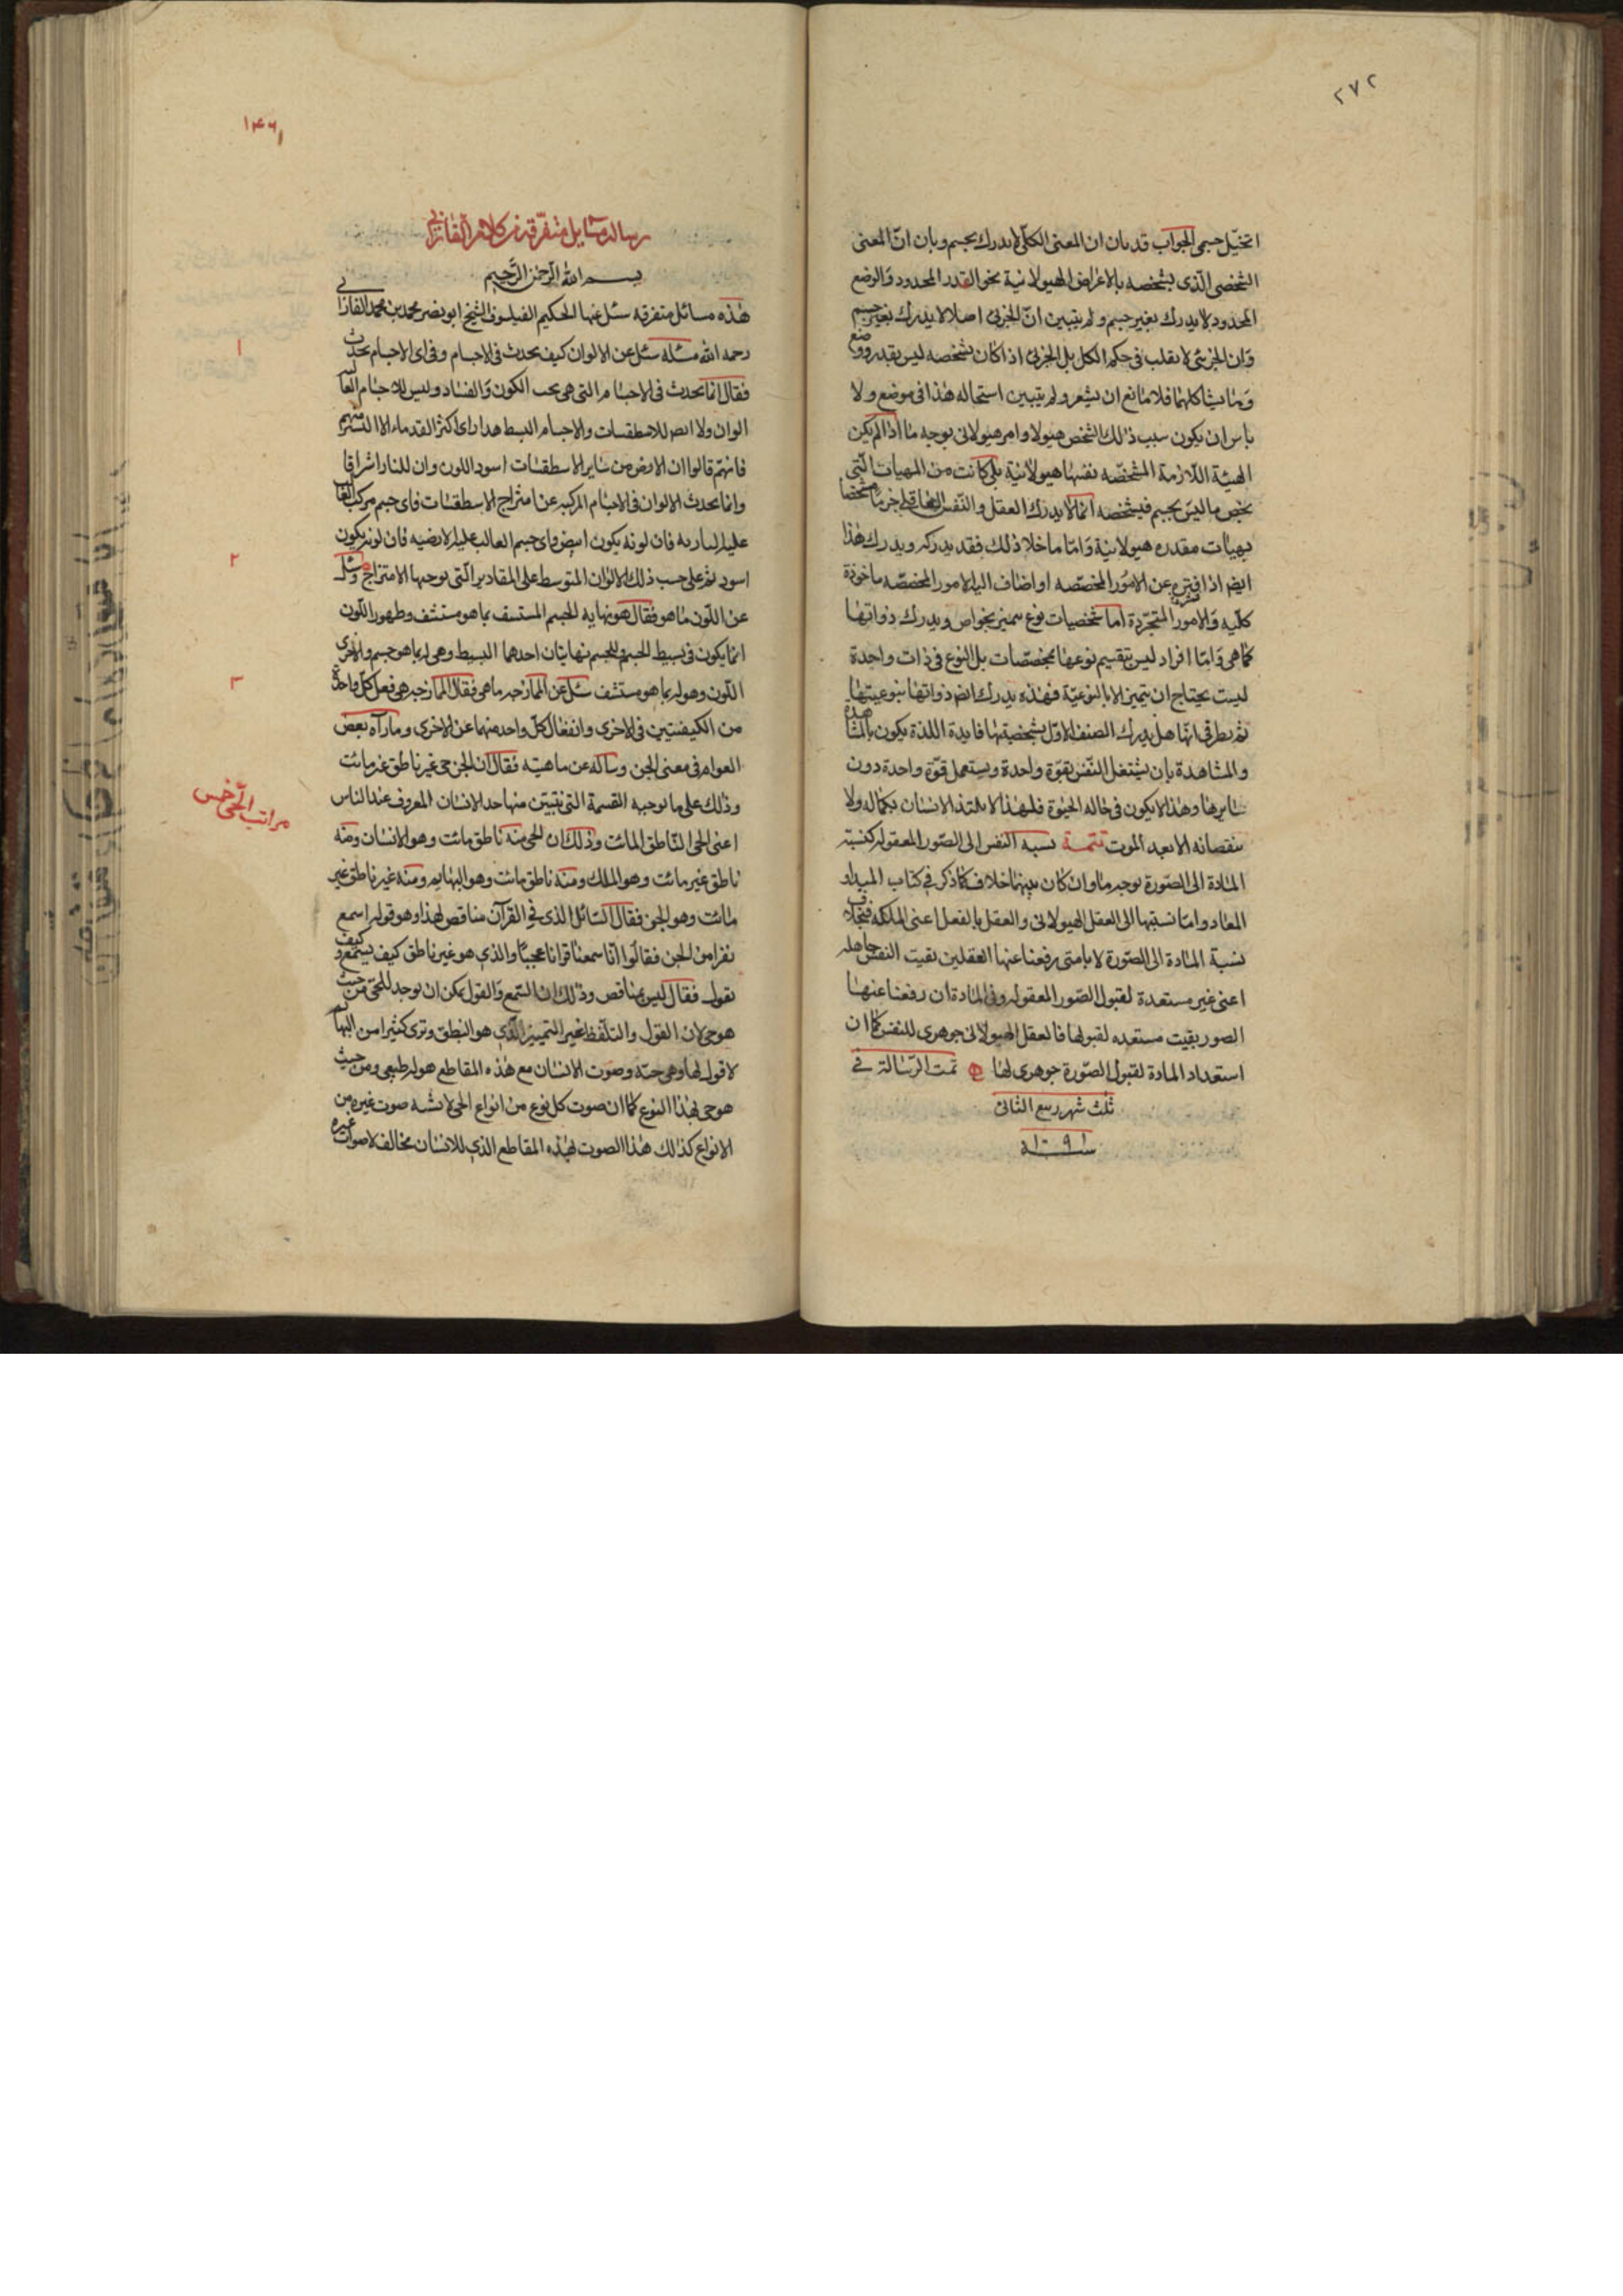 ٢٧٢
اتخيّل جسمى الجواب قد بان ان المعنى الكلّى لا يدرك بجسم وبان انّ المعنى
الشخصى الّذى يشخصه بالاعراض الهيولانية نحو القدر المحدود والوضع
المحدود لا يدرك بغير جسم ولم يتبين انّ الجزئى اصلا لا يدرك بغير جسم
وان الجزئى لا ينقلب فى حكم الكل بل الجزئى اذا كان يشخصه ليس بقدر ووضع
وما يشاكلهما فلا مانع ان يشعر ولم يتبين استحاله هذا فى موضع ولا
باس ان يكون سبب ذلك الشخص هيولا وامر هيولانى بوجه ما اذا لم يكن
الهيئة اللازمة المشخصّه نفسها هيولانية بل كانت من الهيات الّتى
تخص ما ليس بجسم فيشخصه انما لا يدرك العقل والنّفس
بهيات مقدره هيولانية وامّا ما خلا ذلك فقد يدركه ويدرك هذا
ايضا اذا عن الامور المخصّصه او اضاف اليه الامور المخصّصه ماخوذة
كلّيه والامور المتجرّدة اما شخصيات نوع بخواص ويدرك ذواتها
كما هى وامّا افراد ليس تنقسيم نوعها بمخصّصات بل النوع فى ذات واحدة
ليست يحتاج ان يتميز الا بالنوعيّة فهذه يدرك ايضا ذواتها بنوعيتها
ثم يطرق انها هل يدرك الصنف الاوّل بشخصيتها فايدة اللذة يكون بالمشاهدة
والمشاهدة بان يشتغل النّفس بقوة واحدة ويستعمل قوّة واحدة دون
سايرها وهذا لا يكون فى حاله الحيوة فلهذا لا يلتذ الانسان بكماله ولا
بنقصانه الا بعد الموت تتمـــة نسبه النفس الى الصّور المعقوله كنسبة
المادة الى الصّورة بوجه ما وان كان بينهما خلاف كما ذكر فى كتاب المبداو
المعاد وامّا نسبتها الى العقل الهيولانى والعقل بالفعل اعنى الملكه فبخلاف
نسبة المادة الى الصّورة لانا متى رفعنا عنها العقلين بقيت النفس جاهله
اعنى غير مستعدة لقبول الصّور المعقوله وفى المادة ان رفعنا عنها
الصور بقيت مستعده لقبولها فالعقل الهيولانى جوهرى للنفس كما ان
استعداد المادة لقبول الصّورة جوهرى لها تمت الرّسالة فى
ثلث شهر ربيع الثانى
سنة ١٠٩١
رساله مسايل متفرّقه من كلام الفارابى
بسم الله الرّحمن الرّحيم
هذه مسائل متفرقه سئل عنها الحكيم الفيلسوف الشيخ ابو نصر محمد بن محمد الفارابى
رحمه الله مسئله سئل عن الالوان كيف يحدث فى الاجسام وفى اى الاجسام يحدث
١
فقال انما يحدث فى الاجسام التى هى تحت الكون والفساد وليس للاجسام العاليه
الوان ولا ايضا للاسطقسات والاجسام البسيط هذا راى اكثر القدماء الا اليسير منهم
فانهم قالوا ان الارض من ساير الاسطقسات اسود اللون وان للنار اشراقا
وانما يحدث الالوان فى الاجسام المركبه عن امتزاج الاسطقسات فاى جسم مركب الغالب
عليه الناريه فان لونه يكون ابيض واى جسم الغالب عليه الارضيه فان لونه يكون
اسود ثم على حسب ذلك الالوان المتوسط على المقادير الّتى توجبها الامتزاج وسئل
٢
عن اللّون ما هو فقال هو نهايه الجسم المستشف بما هو مستشف وظهور اللّون
انما يكون فى بسيط الجسم وللجسم نهايتان احدهما البسيط وهى له بما هو جسم والاخرى
اللّون وهو له بما هو مستشف سئل عن الممازجه ما هى فقال الممازجه هى فعل كل واحدة
٣
من الكيفيتين فى الاخرى وانفعال كلّ واحد منهما عن الاخرى وما رآه بعض
العوام فى معنى الجن وساله عن ماهيته فقال ان الجن حى غير ناطق غير مائت
وذلك على ما توجبه القسمة التى تتبيّن منها حد الانسان المعروف عند الناس
مراتب الحىّ خمس
اعنى الحى النّاطق المائت وذلك ان الحى منه ناطق مائت وهو الانسان ومنه
ناطق غير مائت وهو الملك ومنه ناطق مائت وهو البهايم ومنه غير ناطق غير
مائت وهو الجن فقال السّائل الذى فى القرآن مناقص لهذا وهو قوله اسمع
نفر من الجن فقالوا انّا سمعنا قرانا عجبًا والذى هو غير ناطق كيف يسمع وكيف
يقول فقال ليس بمناقص وذلك ان السّمع والقول يمكن ان يوجد للحىّ من حيث
هو حى لان القول والتلفّظ غير التمييز الّذى هو النطق وترى كثيرا من البهايم
لا قول لها وهى حيّة وصوت الانسان مع هذه المقاطع هو له طبيعى ومن حيث
هو حى بهذا النوع كما ان صوت كل نوع من انواع الحى لا يشبه صوت غيره من
الانواع كذلك هذا الصوت بهذه المقاطع الذى للانسان مخالف لاصوات غيره